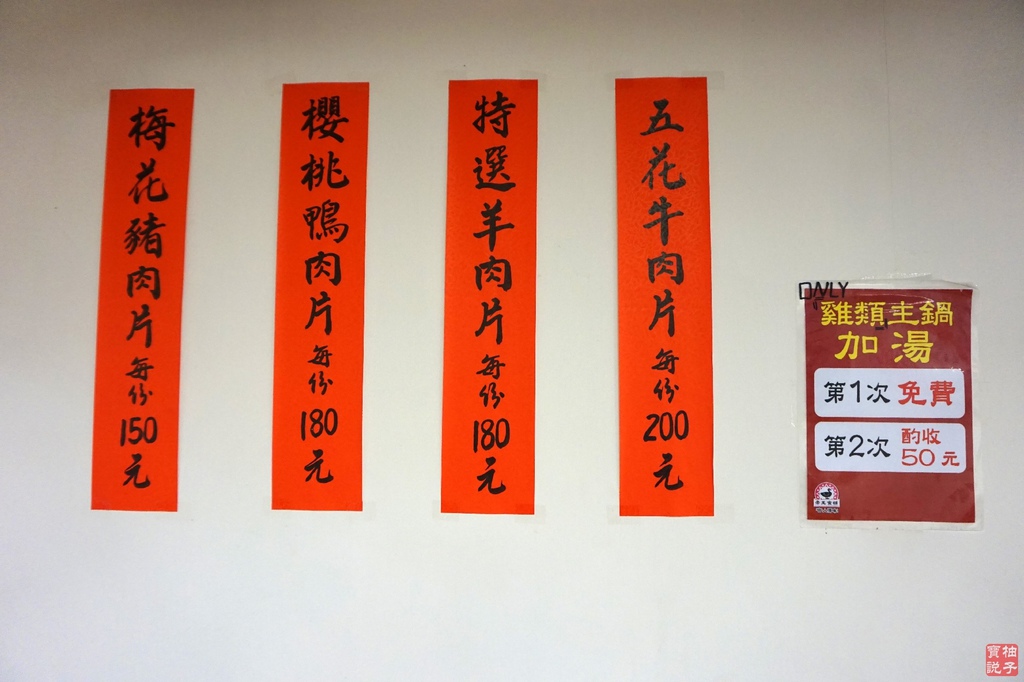 梅花豬肉片每份150元
櫻桃鴨肉片每份180元
特選羊肉片每份180元
五花牛肉片每份200元
ONLY
雞類主鍋
加湯
第1次 免費
第2次 酌收
50元
柚子
寶說